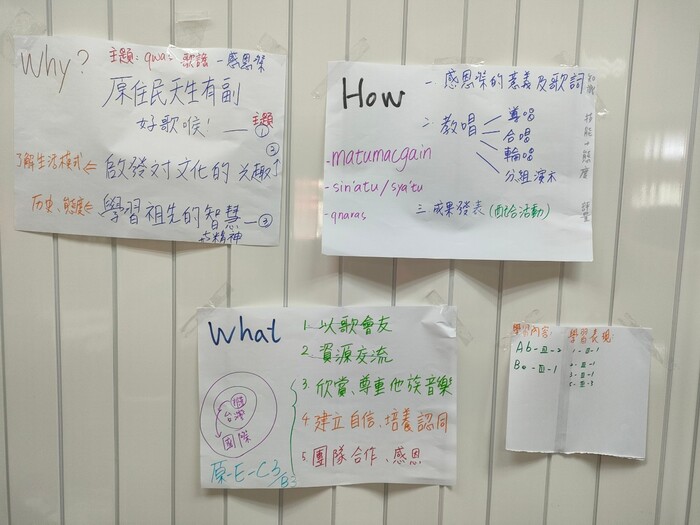 Why?
主題: qwas 歌謠 - 感恩祭
原住民天生有副
好歌喉! — 主題
①
②
了解生活模式⇐ 啟發对文化的 兴趣↑
历史、態度⇐ 學習祖先的智慧 — ③
与精神
How
一 感恩祭的意義及歌詞
知識
二. 教唱
導唱
合唱
輪唱
分組演示
技能、態度
- matumacgain
- sin'atu / sya'tu
- qnaras
三. 成果發表 (配合活動)
What
1. 以歌會友
2. 資源交流
3. 欣賞、尊重他族音樂
4. 建立自信、培養認同
5. 團隊合作、感恩
台灣
國際
原-E-C3
/B3
學習內容:
Ab-Ⅲ-2
Bo-Ⅲ-1
學習表現
1-Ⅲ-1